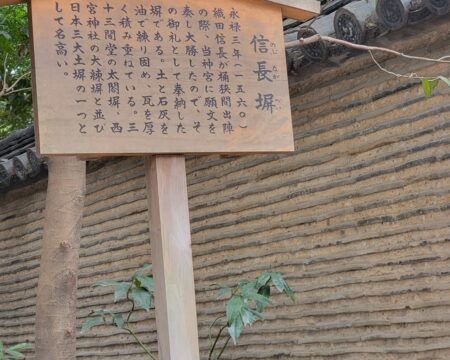 信長塀
のぶなが
永禄三年(一五六〇)
織田信長が桶狭間出陣
の際、当神宮に願文を
奏し大勝したので、そ
の御礼として奉納した
塀である。土と石灰を
油で練り固め、瓦を厚
く積み重ねている。三
十三間堂の太閤塀、西
宮神社の大練塀と並び
日本三大土塀の一つと
して名高い。